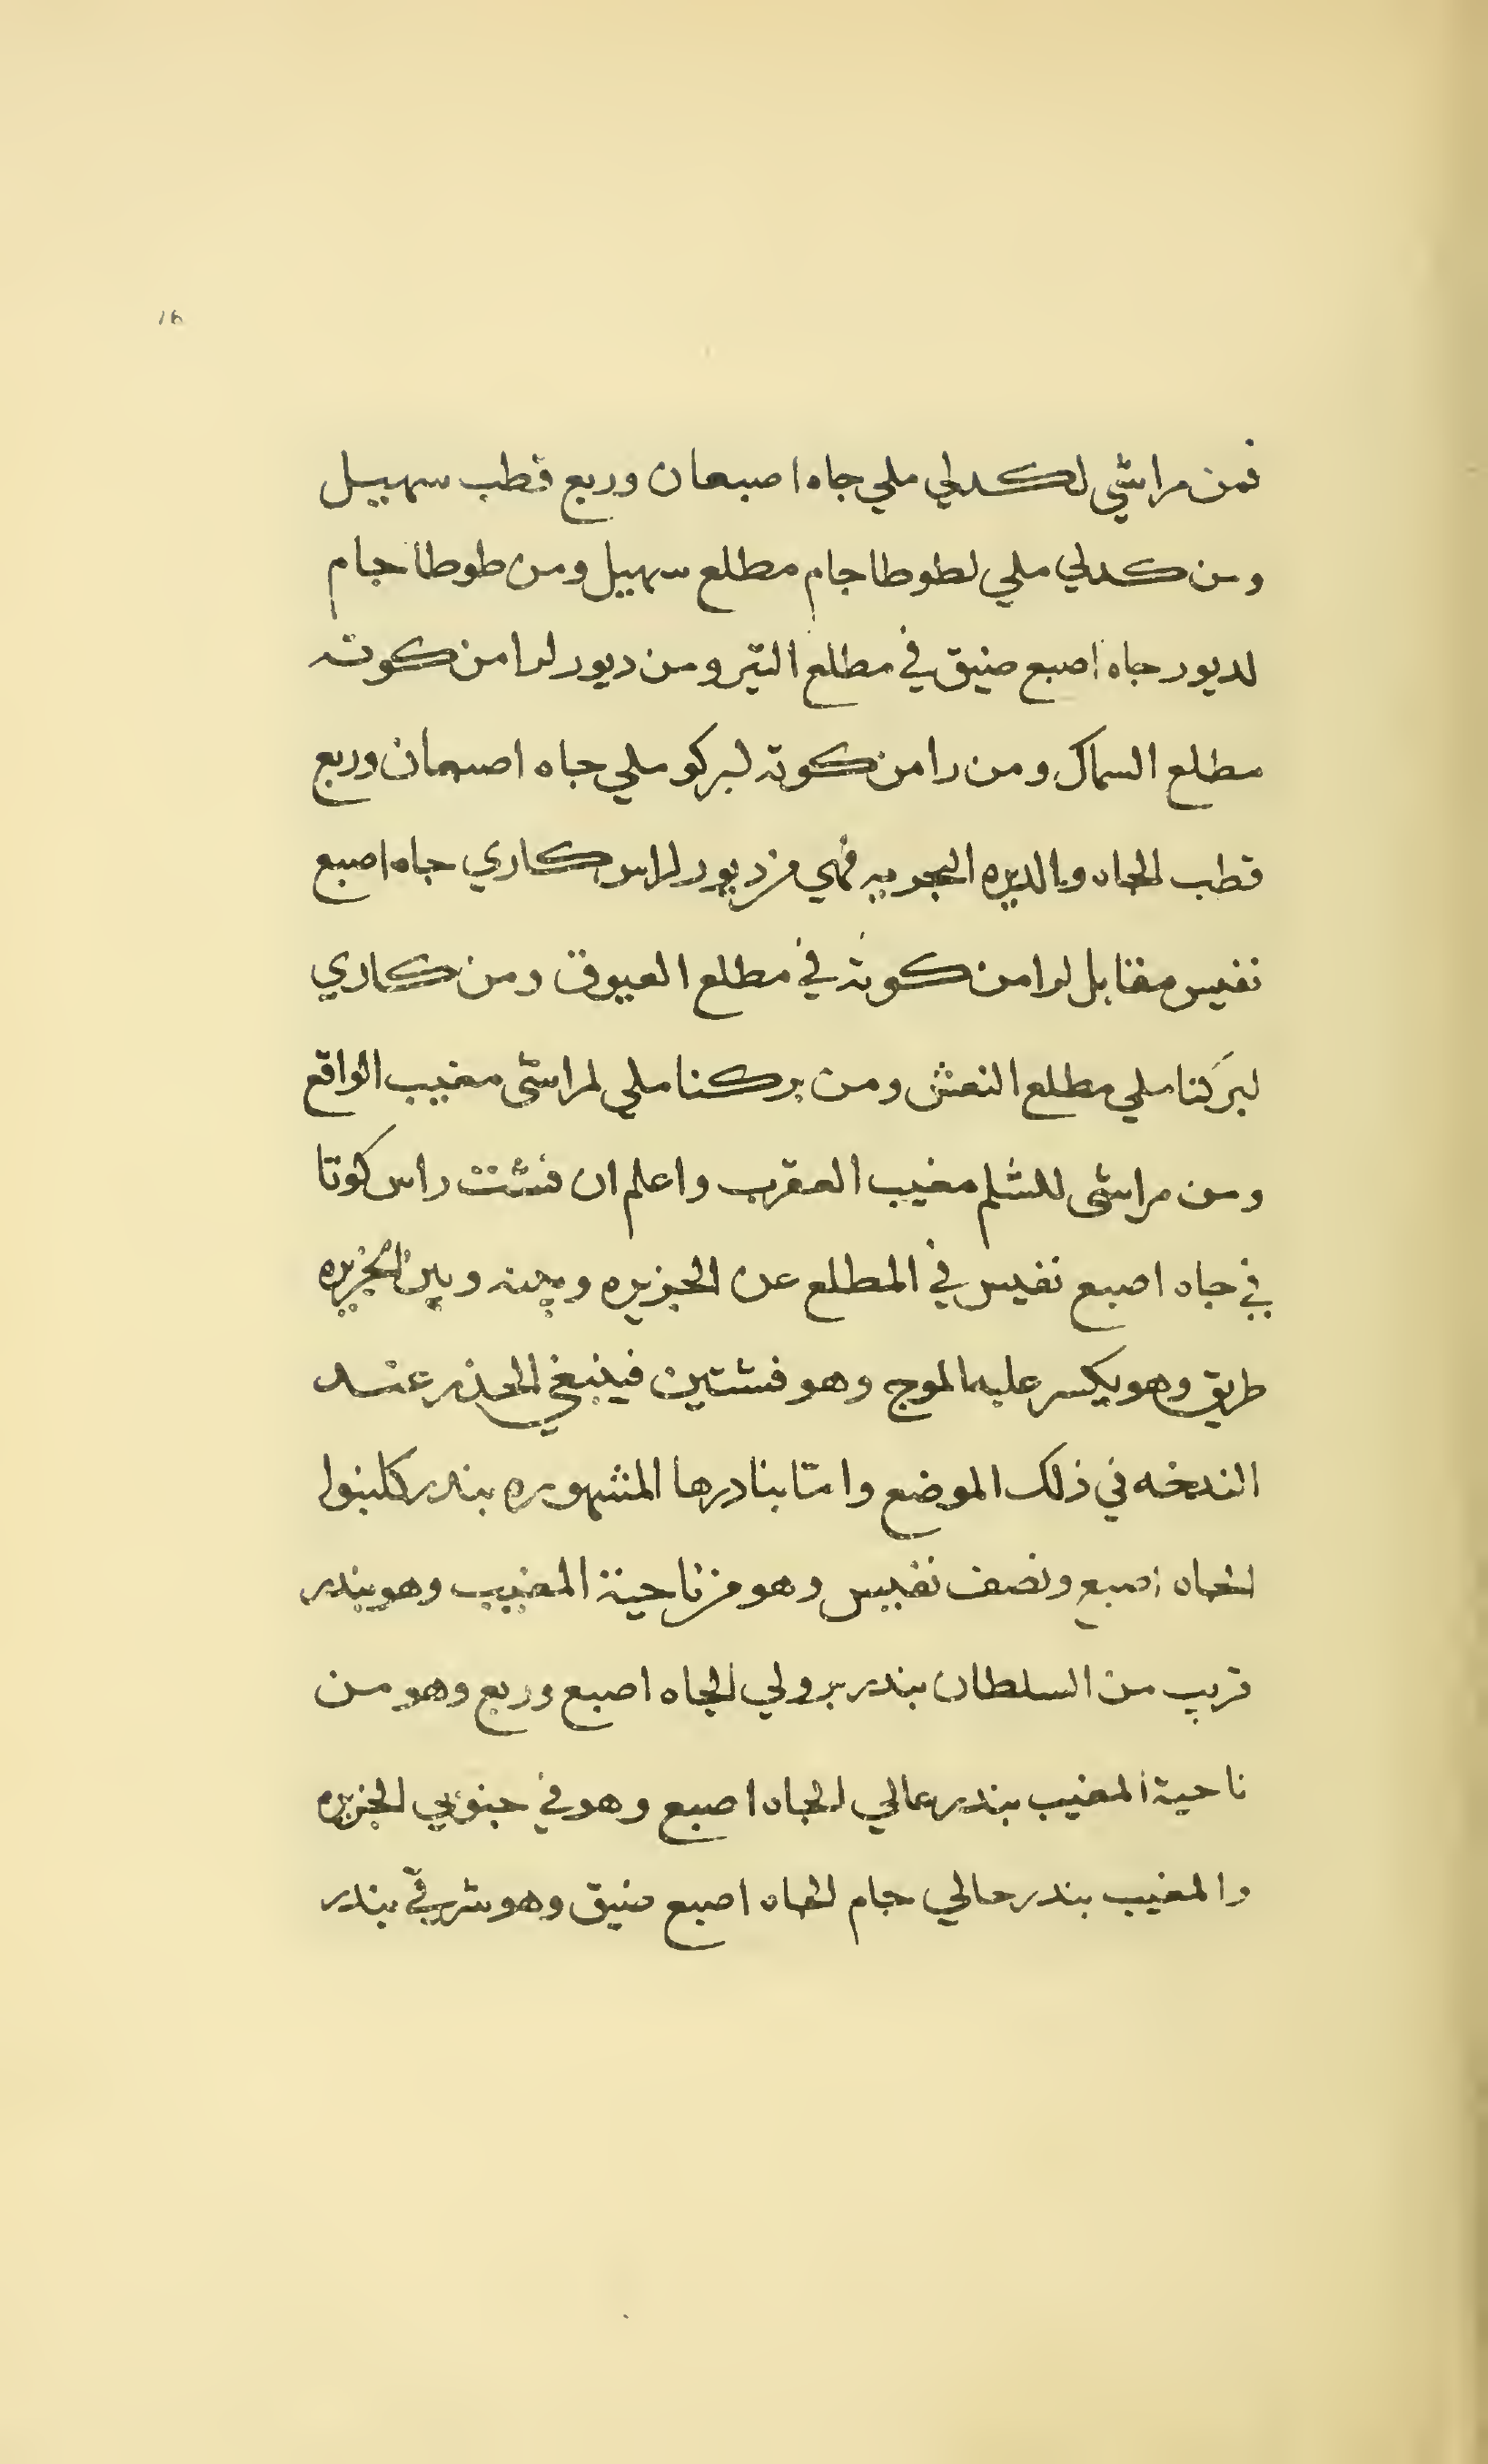 16
فمن مراشي لكدلي ملي جاه اصبعان وربع قطب سهيل
ومن كدلي ملي لطوطا جام مطلع سهيل ومن طوطا جام
لديور جاه اصبع ضيق في مطلع التير ومن ديور لرامن كوته
مطلع السماك ومن رامن كوته لبركو ملي جاه اصبعان وربع
قطب الجاه والديره البحريه فهي من ديور لراس كاري جاه اصبع
نفيس مقابل لرامن كوته في مطلع العيوق ومن كاري
لبركنا ملي مطلع النعش ومن بركنا ملي لمراشى مغيب الواقع
ومن مراشى للشلم مغيب العقرب واعلم ان فشت راس كوتا
في جاه اصبع نفيس في المطلع عن الجزيره وبينه وبين الجزيره
طريق وهو يكسر عليه الموج وهو فشتين فينبغي الحذر عند
الندخه في ذلك الموضع وامّا بنادرها المشهوره بندر كلنبوا
الجاه اصبع ونصف نفيس وهو من ناحية المغيب وهو بندر
قريب من السلطان بندر برولي الجاه اصبع وربع وهو من
ناحية المغيب بندر عالي الجاه اصبع وهو في جنوبي الجزيره
والمغيب بندر حالي جام الجاه اصبع ضيق وهو شرقي بندر